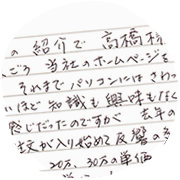 の紹介で高橋様
ごろ 当社のホームページを
それまでパソコンにはさわっ
いほど知識も興味もなく
感じだったのですが 去年の
注文が入り始めて反響の多
20万、30万の単価